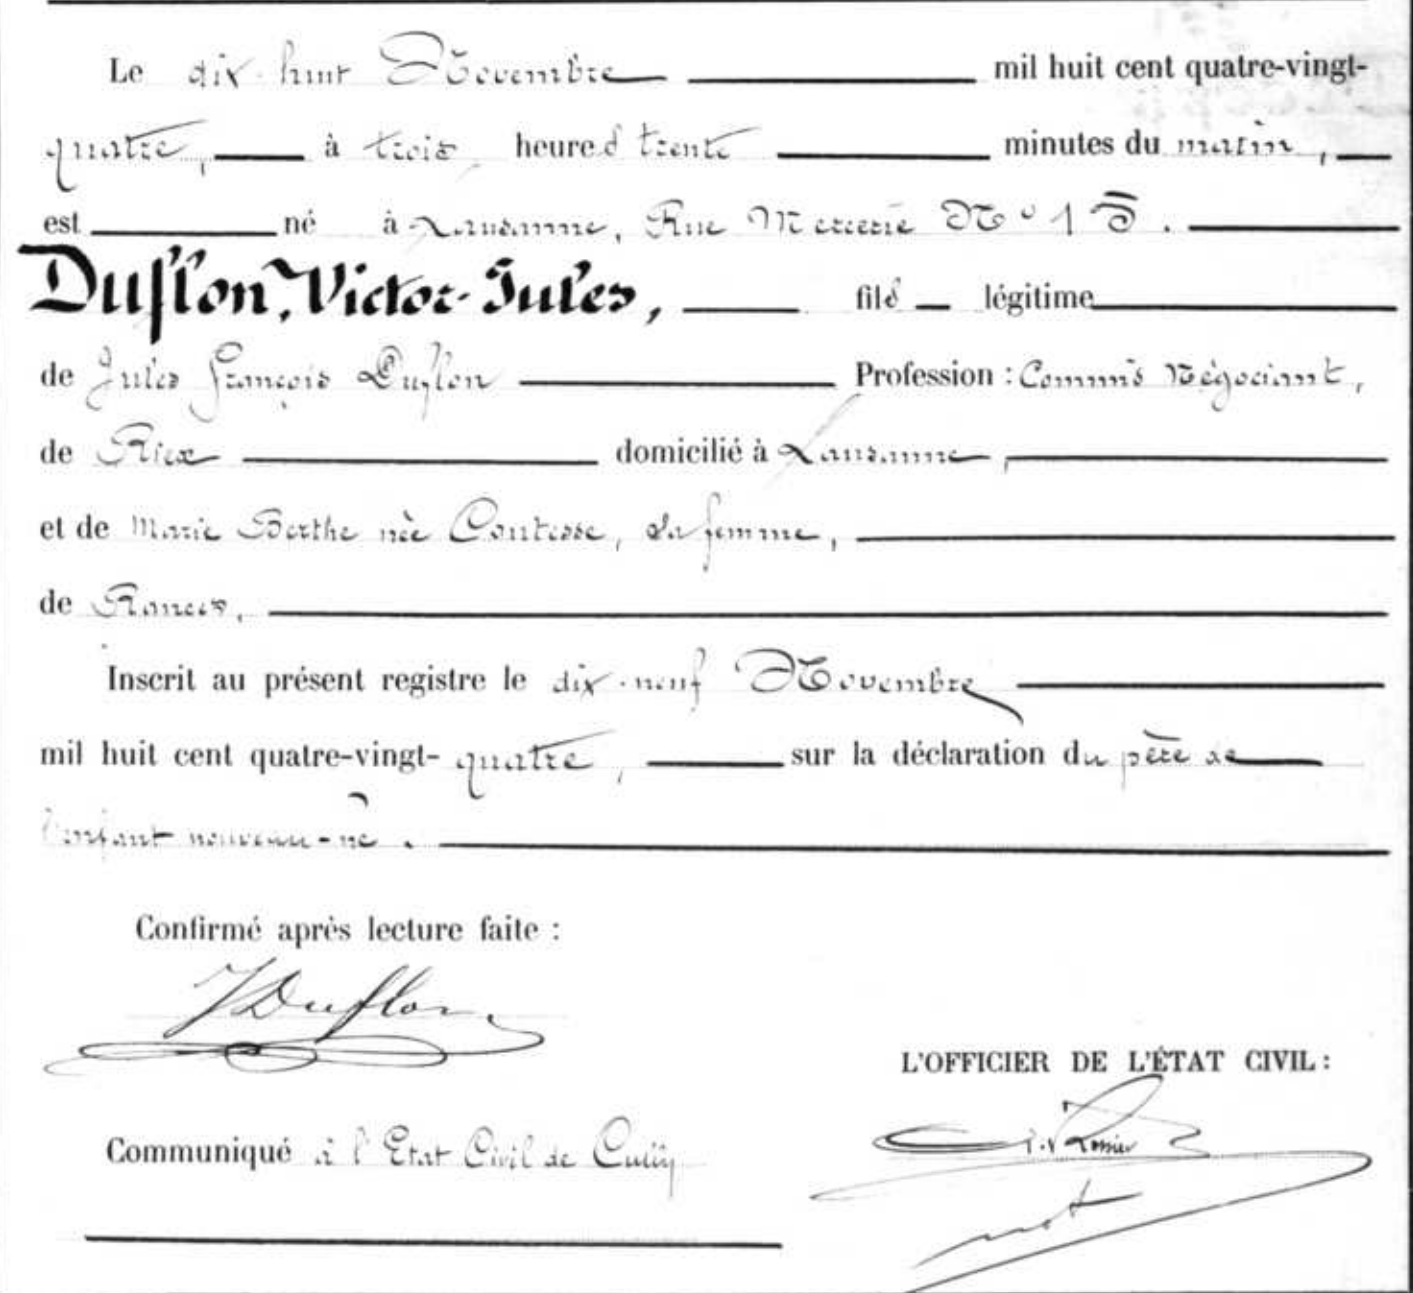 Le dix-huit Novembre mil huit cent quatre-vingt-
quatre, à trois heures trente minutes du matin,
est né à Lausanne, Rue Mercerie No 15.
Duflon, Victor-Jules, fils légitime
de Jules François Duflon Profession : Commis Négociant,
de Riex domicilié à Lausanne,
et de Marie Berthe née Contesse, sa femme,
de Rances,
Inscrit au présent registre le dix-neuf Novembre
mil huit cent quatre-vingt-quatre, sur la déclaration du père de
l'enfant nouveau-né.
Confirmé après lecture faite :
J Duflon
L'OFFICIER DE L'ÉTAT CIVIL :
Communiqué à l'Etat Civil de Cully
not